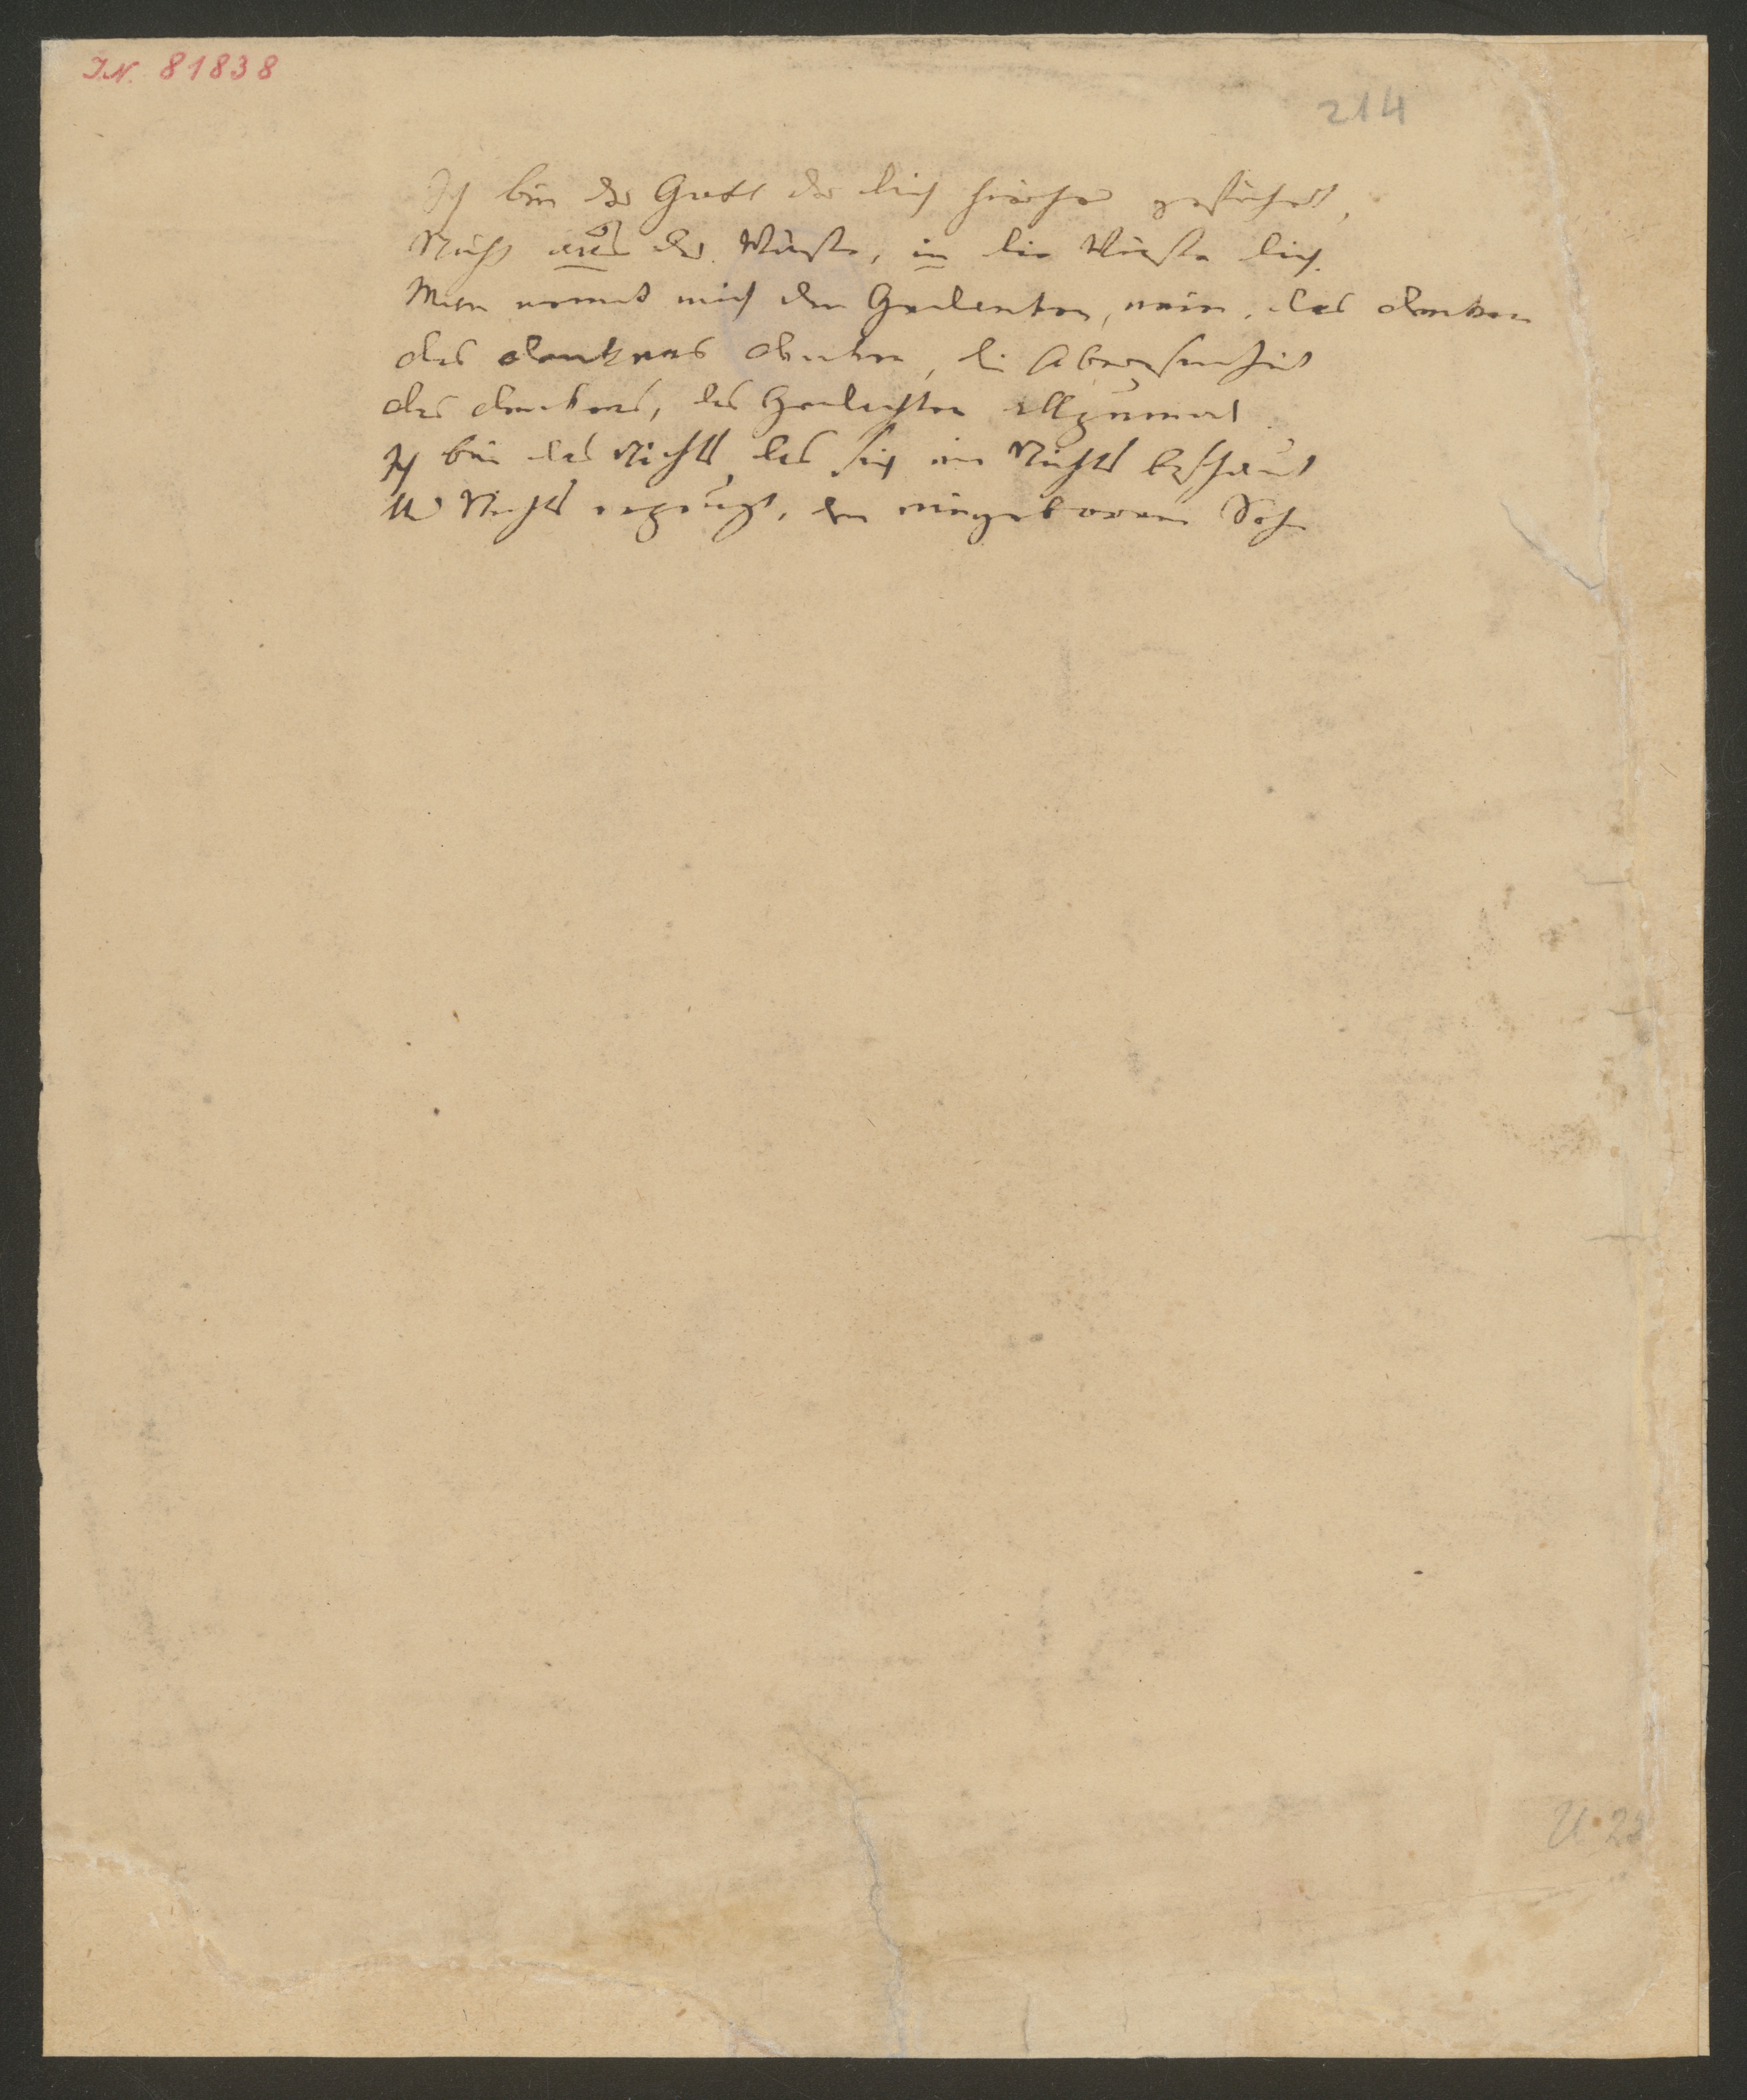 I.N. 81838
214
Ich bin der Gott der dich hierher geführt,
Nicht aus der Wüste, in die Wüste dich.
Man nennt mich den Gedanken, nein, das denken
des denkens denken, die Abwesenheit
des denkens, des Gedachten allzumal.
Ich bin das Nichts, das sich im Nichts beschaut
Und Nichts erzeugt, den eingebornen Sohn